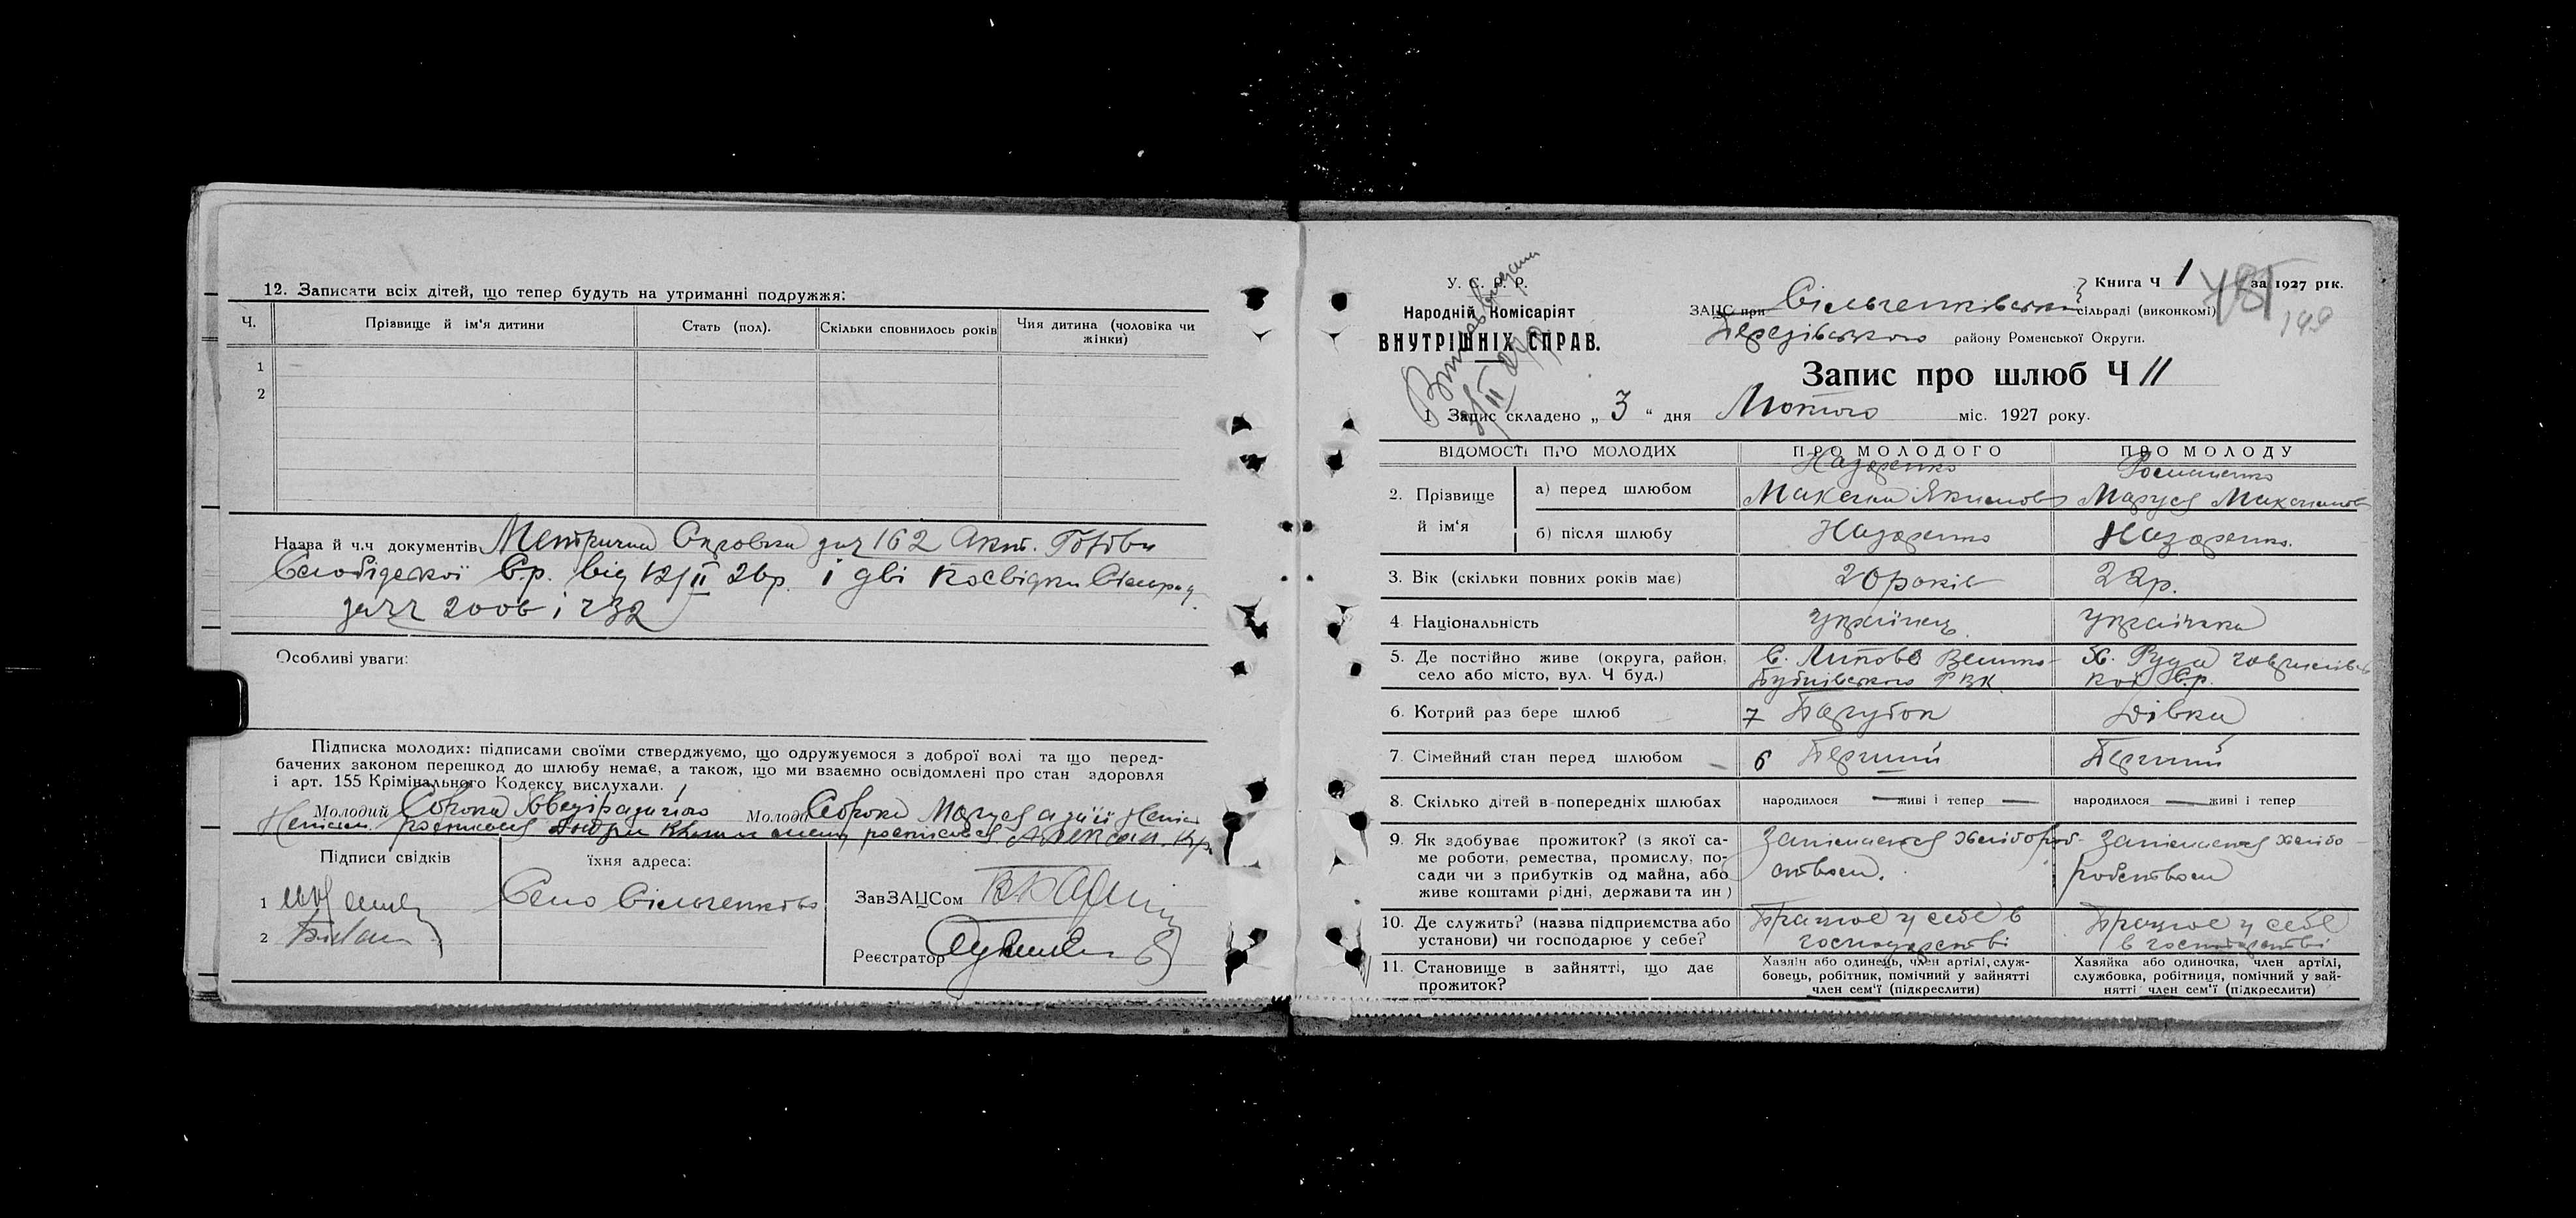 12. Записати всіх дітей, що тепер будуть на утриманні подружжя:
Ч. Прізвище й ім'я дитини Стать (пол). Скільки сповнилось років Чия дитина (чоловіка чи жінки)
1
2
Назва й ч.ч документів Метрична Справка за ч 162 Акт.
Слобідської С.р. від 12/II 26р. і дві посвідки Сільрад
за чч 2006 і 232
Особливі уваги:
Підписка молодих: підписами своїми стверджуємо, що одружуємося з доброї волі та що перед-
бачених законом перешкод до шлюбу немає, а також, що ми взаємно освідомлені про стан здоровля
і арт. 155 Крімінального Кодексу вислухали.
Молодий Сорока Молода Сорока Маруся а за її
Підписи свідків їхня адреса:
1 Село Сільченково ЗавЗАЦСом
2 Реєстратор
У. С. Р. Р.
Народній Комісаріят
ВНУТРІШНІХ СПРАВ.
Книга Ч 1 за 1927 рік.
ЗАЦС при Сільченківський сільраді (виконкомі)
району Роменської Округи.
149
Запис про шлюб Ч 11
1 Запис складено „ 3 “ дня Лютого міс. 1927 року.
ВІДОМОСТІ ПРО МОЛОДИХ ПРО МОЛОДОГО ПРО МОЛОДУ
2. Прізвище й ім'я
а) перед шлюбом Назаренко Романенко
Максим Якимов Маруся Максимов
б) після шлюбу Назаренко Назаренко.
3. Вік (скільки повних років має) 20 років 22р.
4. Національність Українець Українка
5. Де постійно живе (округа, район, село або місто, вул. Ч буд.) С. Липове Велико- Х. Руда
Бубнівського РВК кої С.р.
6. Котрий раз бере шлюб 7 Парубок Дівка
7. Сімейний стан перед шлюбом 6 Перший Перший
8. Скілько дітей в попередніх шлюбах народилося — живі і тепер — народилося — живі і тепер
9. Як здобуває прожиток? (з якої са-
ме роботи, ремества, промислу, по-
сади чи з прибутків од майна, або
живе коштами рідні, держави та ин) Занімається хлібороб-
ством. Занімається хлібо
робством
10. Де служить? (назва підприємства або
установи) чи господарює у себе? Працює у себе в
господарстві Працює у себе
в господарстві
11. Становище в зайнятті, що дає
прожиток?
Хазяїн або одинець, член артілі, служ-
бовець, робітник, помічний у зайнятті
член сем'ї (підкреслити)
Хазяйка або одиночка, член артілі,
службовка, робітниця, помічний у зай-
нятті член сем'ї (підкреслити)